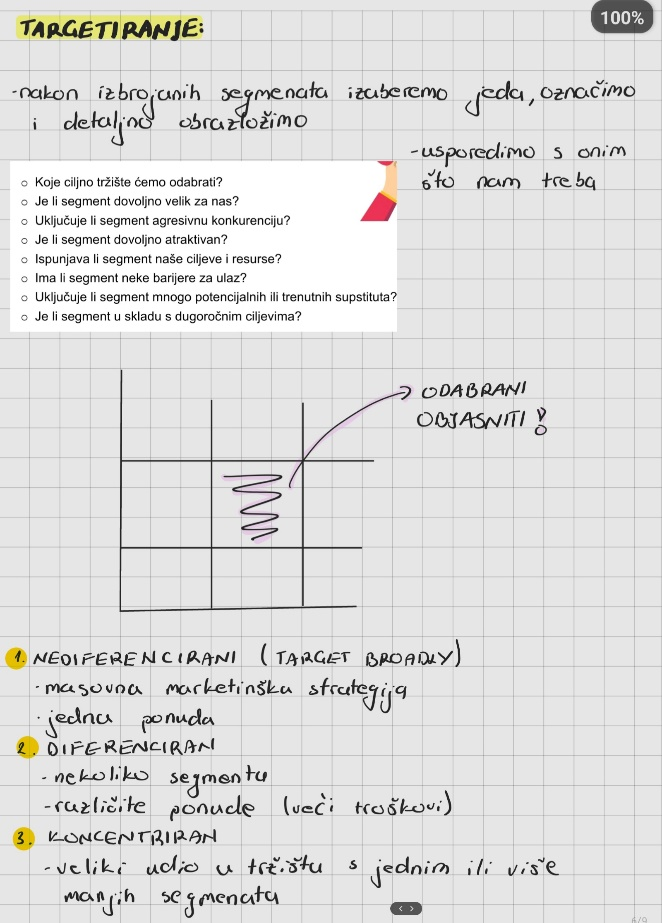 100%
TARGETIRANJE:
-nakon izbrojanih segmenata izaberemo jeda, označimo
i detaljno obrazložimo
-usporedimo s onim
što nam treba
○ Koje ciljno tržište ćemo odabrati?
○ Je li segment dovoljno velik za nas?
○ Uključuje li segment agresivnu konkurenciju?
○ Je li segment dovoljno atraktivan?
○ Ispunjava li segment naše ciljeve i resurse?
○ Ima li segment neke barijere za ulaz?
○ Uključuje li segment mnogo potencijalnih ili trenutnih supstituta?
○ Je li segment u skladu s dugoročnim ciljevima?
ODABRANI
OBJASNITI!
1. NEDIFERENCIRANI (TARGET BROADLY)
· masovna marketinška strategija
· jedna ponuda
2. DIFERENCIRAN
- nekoliko segmenta
- različite ponude (veći troškovi)
3. KONCENTRIRAN
- veliki udio u tržištu s jednim ili više
manjih segmenata
6/9